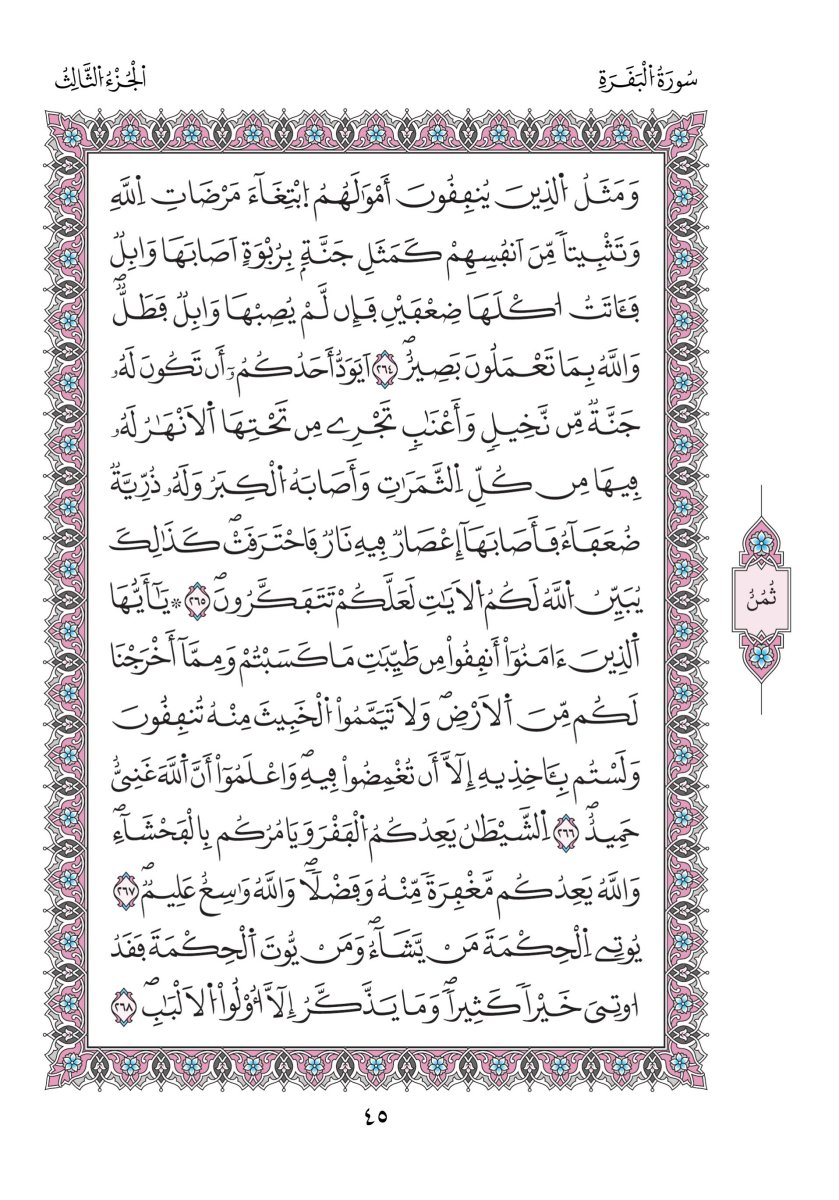 سُورَةُ اُ۬لْبَقَرَةِ
اَ۬لْجُزْءُ اُ۬لثَّالِثُ
وَمَثَلُ اُ۬لذِينَ يُنفِقُونَ أَمْوَٰلَهُمُ اُ۪بْتِغَآءَ مَرْضَاتِ اِ۬للَّهِ
وَتَثْبِيتاٗ مِّنَ اَنفُسِهِمْ كَمَثَلِ جَنَّةِۢ بِرُبْوَةٍ اَصَابَهَا وَابِلٞ
فَـَٔاتَتُ ا۟كْلَهَا ضِعْفَيْنِ فَإِن لَّمْ يُصِبْهَا وَابِلٞ فَطَلّٞۖ
وَاللَّهُ بِمَا تَعْمَلُونَ بَصِيرٌۖ ٢٦٤ اَيَوَدُّ أَحَدُكُمُۥٓ أَن تَكُونَ لَهُۥ
جَنَّةٞ مِّن نَّخِيلٖ وَأَعْنَٰبٖ تَجْرِے مِن تَحْتِهَا اَ۬لَانْهَٰرُ لَهُۥ
فِيهَا مِن كُلِّ اِ۬لثَّمَرَٰتِ وَأَصَابَهُ اُ۬لْكِبَرُ وَلَهُۥ ذُرِّيَّةٞ
ضُعَفَآءُ فَأَصَابَهَآ إِعْصَارٞ فِيهِ نَارٞ فَاحْتَرَقَتْۖ كَذَٰلِكَ
يُبَيِّنُ اُ۬للَّهُ لَكُمُ اُ۬لَايَٰتِ لَعَلَّكُمْ تَتَفَكَّرُونَۖ ٢٦٥ ۞ يَٰٓأَيُّهَا
اَ۬لذِينَ ءَامَنُوٓاْ أَنفِقُواْ مِن طَيِّبَٰتِ مَا كَسَبْتُمْ وَمِمَّآ أَخْرَجْنَا
لَكُم مِّنَ اَ۬لَارْضِۖ وَلَا تَيَمَّمُواْ اُ۬لْخَبِيثَ مِنْهُ تُنفِقُونَ
وَلَسْتُم بِـَٔاخِذِيهِ إِلَّآ أَن تُغْمِضُواْ فِيهِۖ وَاعْلَمُوٓاْ أَنَّ اَ۬للَّهَ غَنِيٌّ
حَمِيدٌۖ ٢٦٦ اِ۬لشَّيْطَٰنُ يَعِدُكُمُ اُ۬لْفَقْرَ وَيَامُرُكُم بِالْفَحْشَآءِۖ
وَاللَّهُ يَعِدُكُم مَّغْفِرَةٗ مِّنْهُ وَفَضْلاٗۖ وَاللَّهُ وَٰسِعٌ عَلِيمٞۖ ٢٦٧
يُوتِے اِ۬لْحِكْمَةَ مَنْ يَّشَآءُۖ وَمَنْ يُّوتَ اَ۬لْحِكْمَةَ فَقَدُ
ا۟وتِيَ خَيْراٗ كَثِيراٗۖ وَمَا يَذَّكَّرُ إِلَّآ أُوْلُواْ اُ۬لَالْبَٰبِۖ ٢٦٨
ثُمُنُ
٤٥